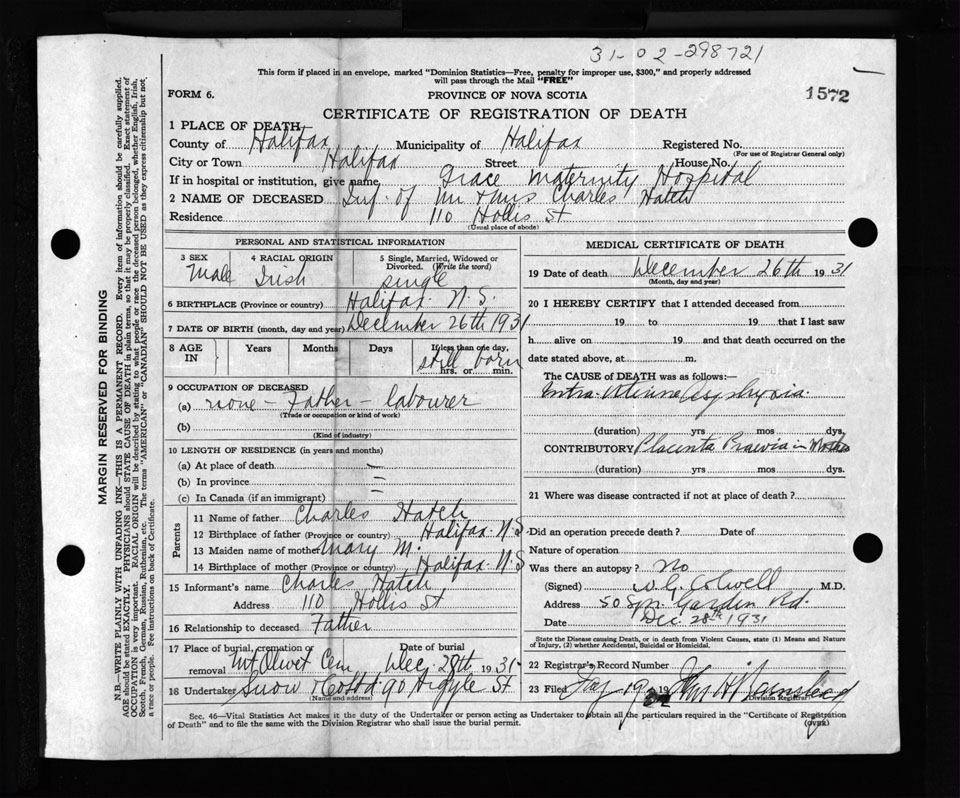 31-02-298721
This form if placed in an envelope, marked "Dominion Statistics—Free, penalty for improper use, $300," and properly addressed
will pass through the Mail "FREE"
FORM 6.
PROVINCE OF NOVA SCOTIA
1572
CERTIFICATE OF REGISTRATION OF DEATH
1 PLACE OF DEATH
County of Halifax Municipality of Halifax Registered No.
(For use of Registrar General only)
City or Town Halifax Street House No.
If in hospital or institution, give name Grace Maternity Hospital
2 NAME OF DECEASED Inf. of Mr & Mrs Charles Hatch
Residence 110 Hollis St
(Usual place of abode)
PERSONAL AND STATISTICAL INFORMATION
3 SEX 4 RACIAL ORIGIN 5 Single, Married, Widowed or
Divorced. (Write the word)
Male Irish single
6 BIRTHPLACE (Province or country) Halifax. N.S.
7 DATE OF BIRTH (month, day and year) December 26th 1931
8 AGE IN Years Months Days If less than one day,
still born
hrs. or min.
9 OCCUPATION OF DECEASED
(a) none - Father - labourer
(Trade or occupation or kind of work)
(b)
(Kind of industry)
10 LENGTH OF RESIDENCE (in years and months)
(a) At place of death
(b) In province
(c) In Canada (if an immigrant)
Parents
11 Name of father Charles Hatch
12 Birthplace of father (Province or country) Halifax N.S.
13 Maiden name of mother Mary M.
14 Birthplace of mother (Province or country) Halifax. N.S
15 Informant's name Charles Hatch
Address 110 Hollis St
16 Relationship to deceased Father
17 Place of burial, cremation or removal Mt Olivet Cem Date of burial Dec. 28th 1931
18 Undertaker Snow & Co Ltd 90 Argyle St
(Name and address)
MEDICAL CERTIFICATE OF DEATH
19 Date of death December 26th 1931
(Month, day and year)
20 I HEREBY CERTIFY that I attended deceased from
19 to 19 that I last saw
h alive on 19 and that death occurred on the
date stated above, at m.
The CAUSE of DEATH was as follows:
Intra-Uterine Asphyxia.
(duration) yrs mos dys.
CONTRIBUTORY Placenta Praevia in Mother
(duration) yrs mos dys.
21 Where was disease contracted if not at place of death?
Did an operation precede death? Date of
Nature of operation
Was there an autopsy? No
(Signed) W.G. Colwell M.D.
Address 50 Spr. Garden Rd.
Date Dec. 28th 1931
State the Disease causing Death, or in death from Violent Causes, state (1) Means and Nature
of Injury, (2) whether Accidental, Suicidal or Homicidal.
22 Registrar's Record Number
23 Filed 19
Division Registrar
Sec. 46—Vital Statistics Act makes it the duty of the Undertaker or person acting as Undertaker to obtain all the particulars required in the "Certificate of Registration
of Death" and to file the same with the Division Registrar who shall issue the burial permit.
(OVER)
MARGIN RESERVED FOR BINDING
N.B.—WRITE PLAINLY WITH UNFADING INK—THIS IS A PERMANENT RECORD. Every item of information should be carefully supplied.
AGE should be stated EXACTLY. PHYSICIANS should STATE CAUSE OF DEATH in plain terms, so that it may be properly classified. Exact statement of
OCCUPATION is very important. RACIAL ORIGIN will be described by stating to what people or race the deceased person belonged, whether English, Irish,
Scotch, French, German, Russian, Ruthenian, etc. The terms "AMERICAN" or "CANADIAN" SHOULD NOT BE USED as they express citizenship but not
a race or people. Fee instructions on back of Certificate.